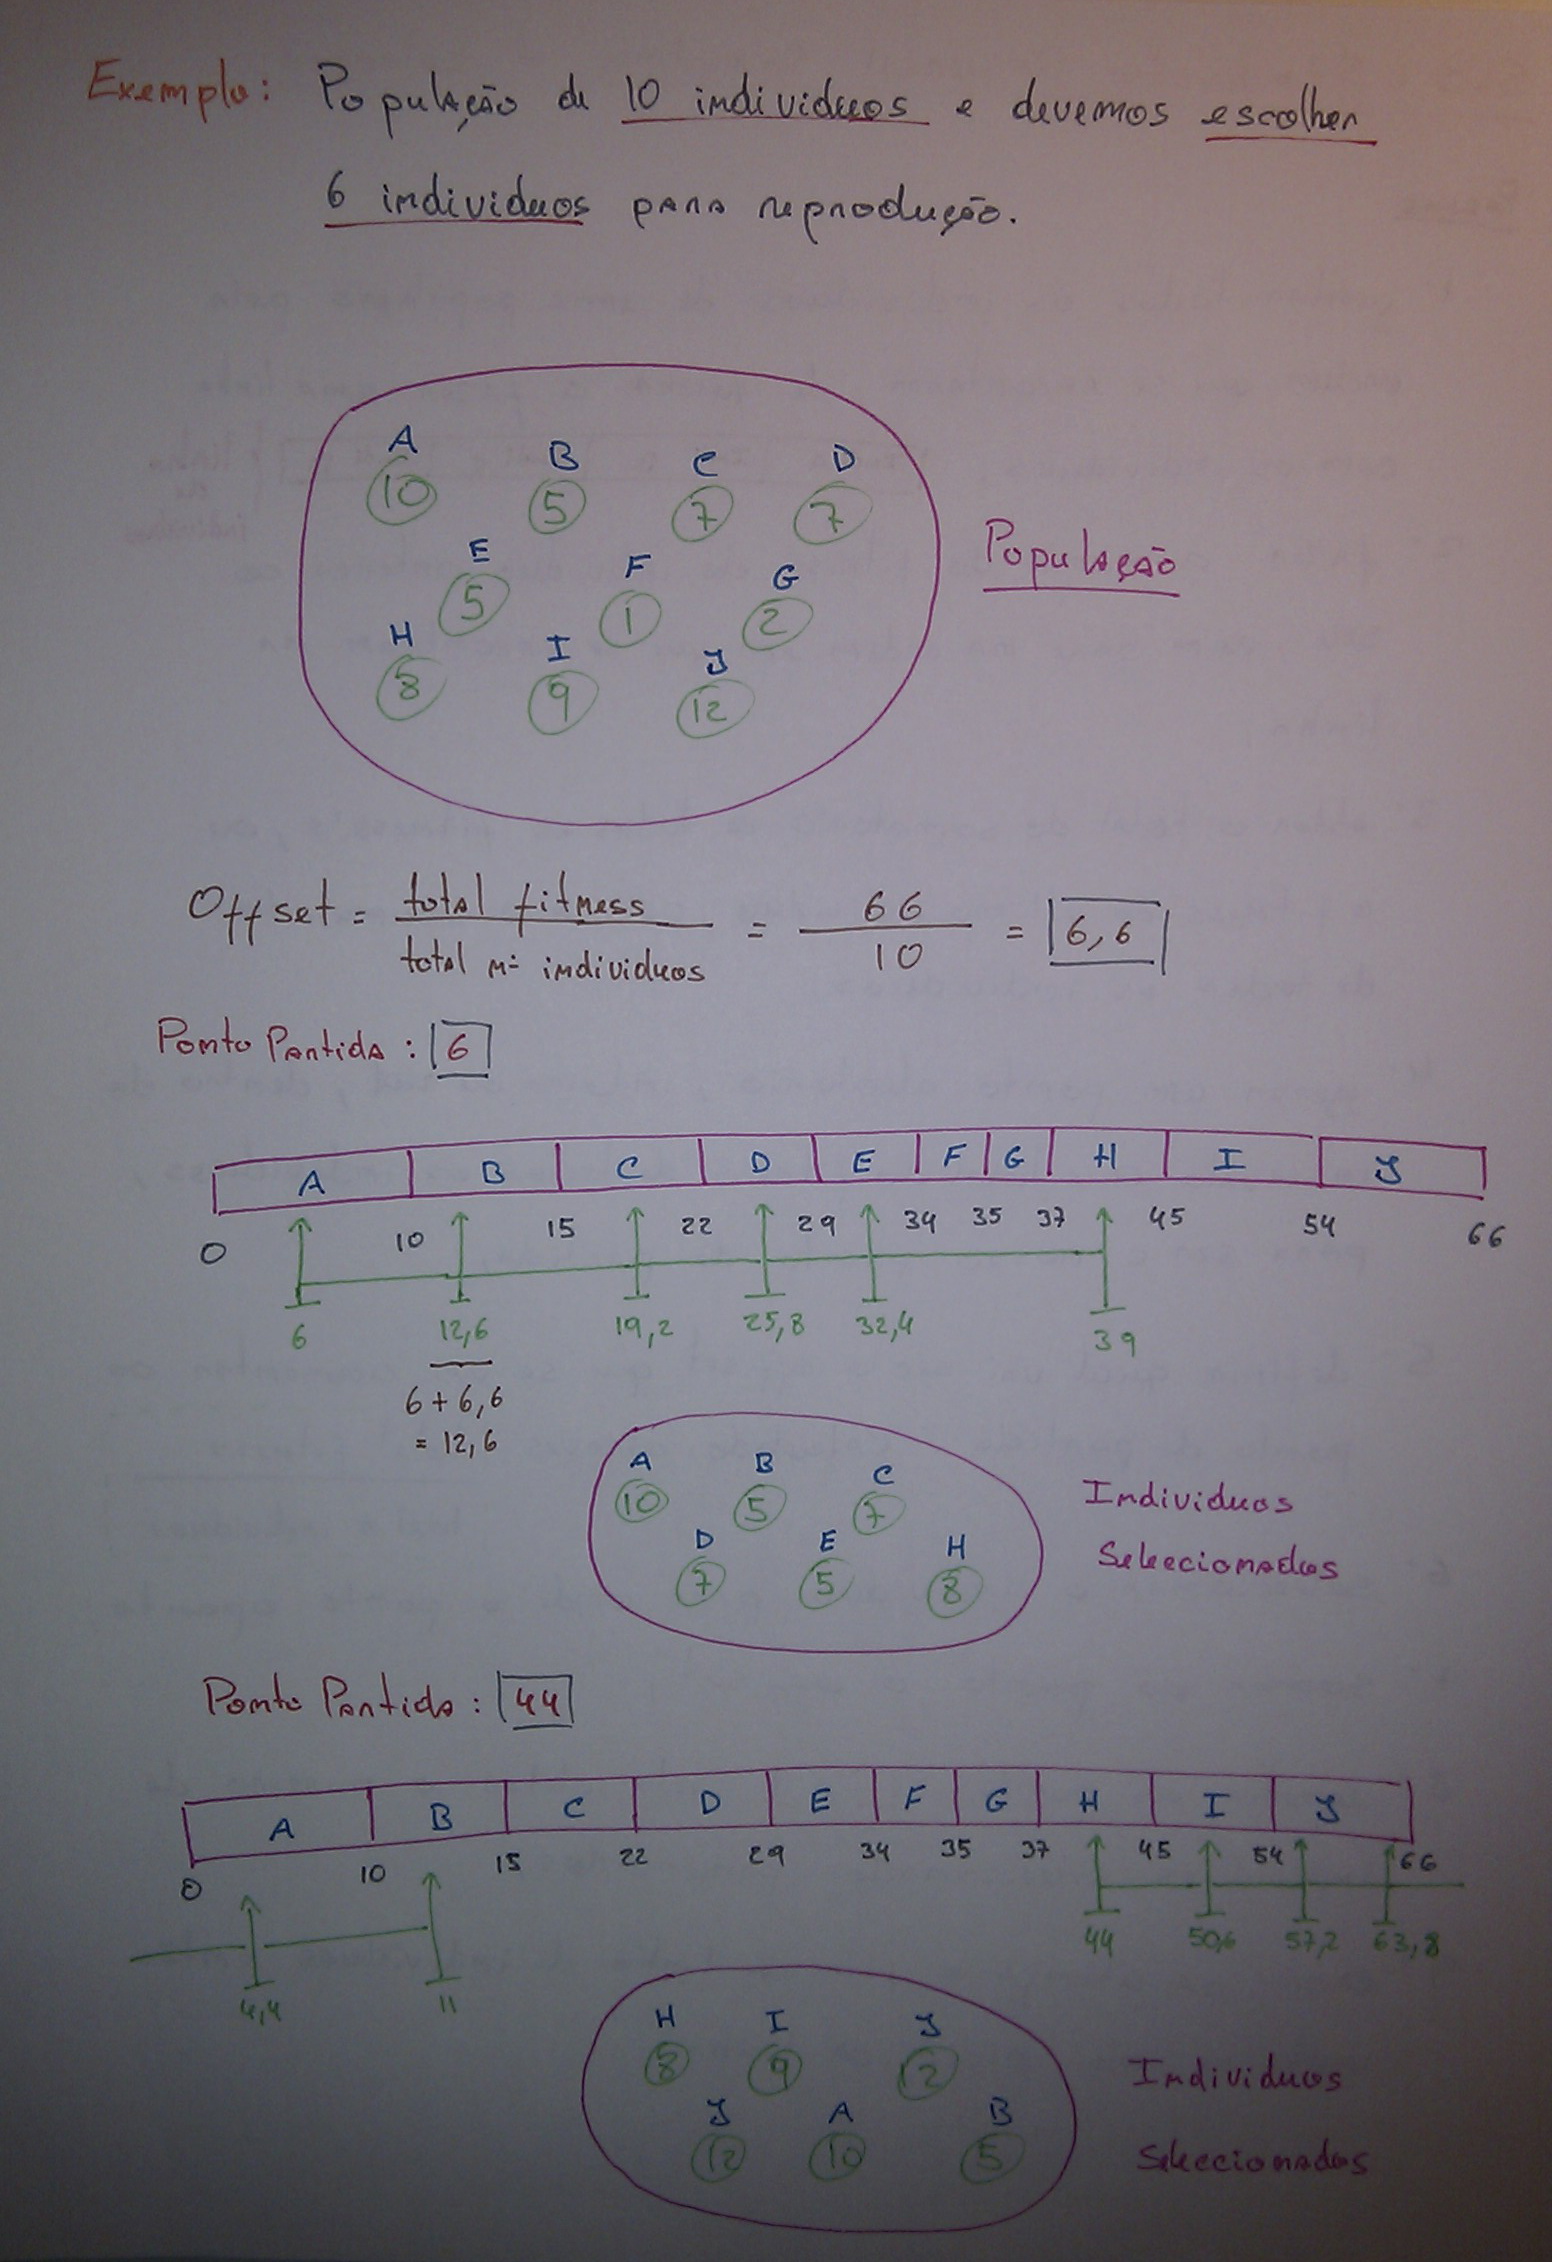 Exemplo: População de 10 individuos e devemos escolher
6 individuos para reprodução.
A B C D
10 5 7 7
E F G
5 1 2
H I J
8 9 12
População
Offset = total fitness / total nº individuos = 66 / 10 = 6,6
Ponto Partida : 6
A B C D E F G H I J
0 10 15 22 29 34 35 37 45 54 66
6 12,6 19,2 25,8 32,4 39
6 + 6,6
= 12,6
A B C
10 5 7
D E H
7 5 8
Individuos
Seleccionados
Ponto Partida : 44
A B C D E F G H I J
0 10 15 22 29 34 35 37 45 54 66
4,4 11 44 50,6 57,2 63,8
H I J
8 9 12
J A B
12 10 5
Individuos
Seleccionados